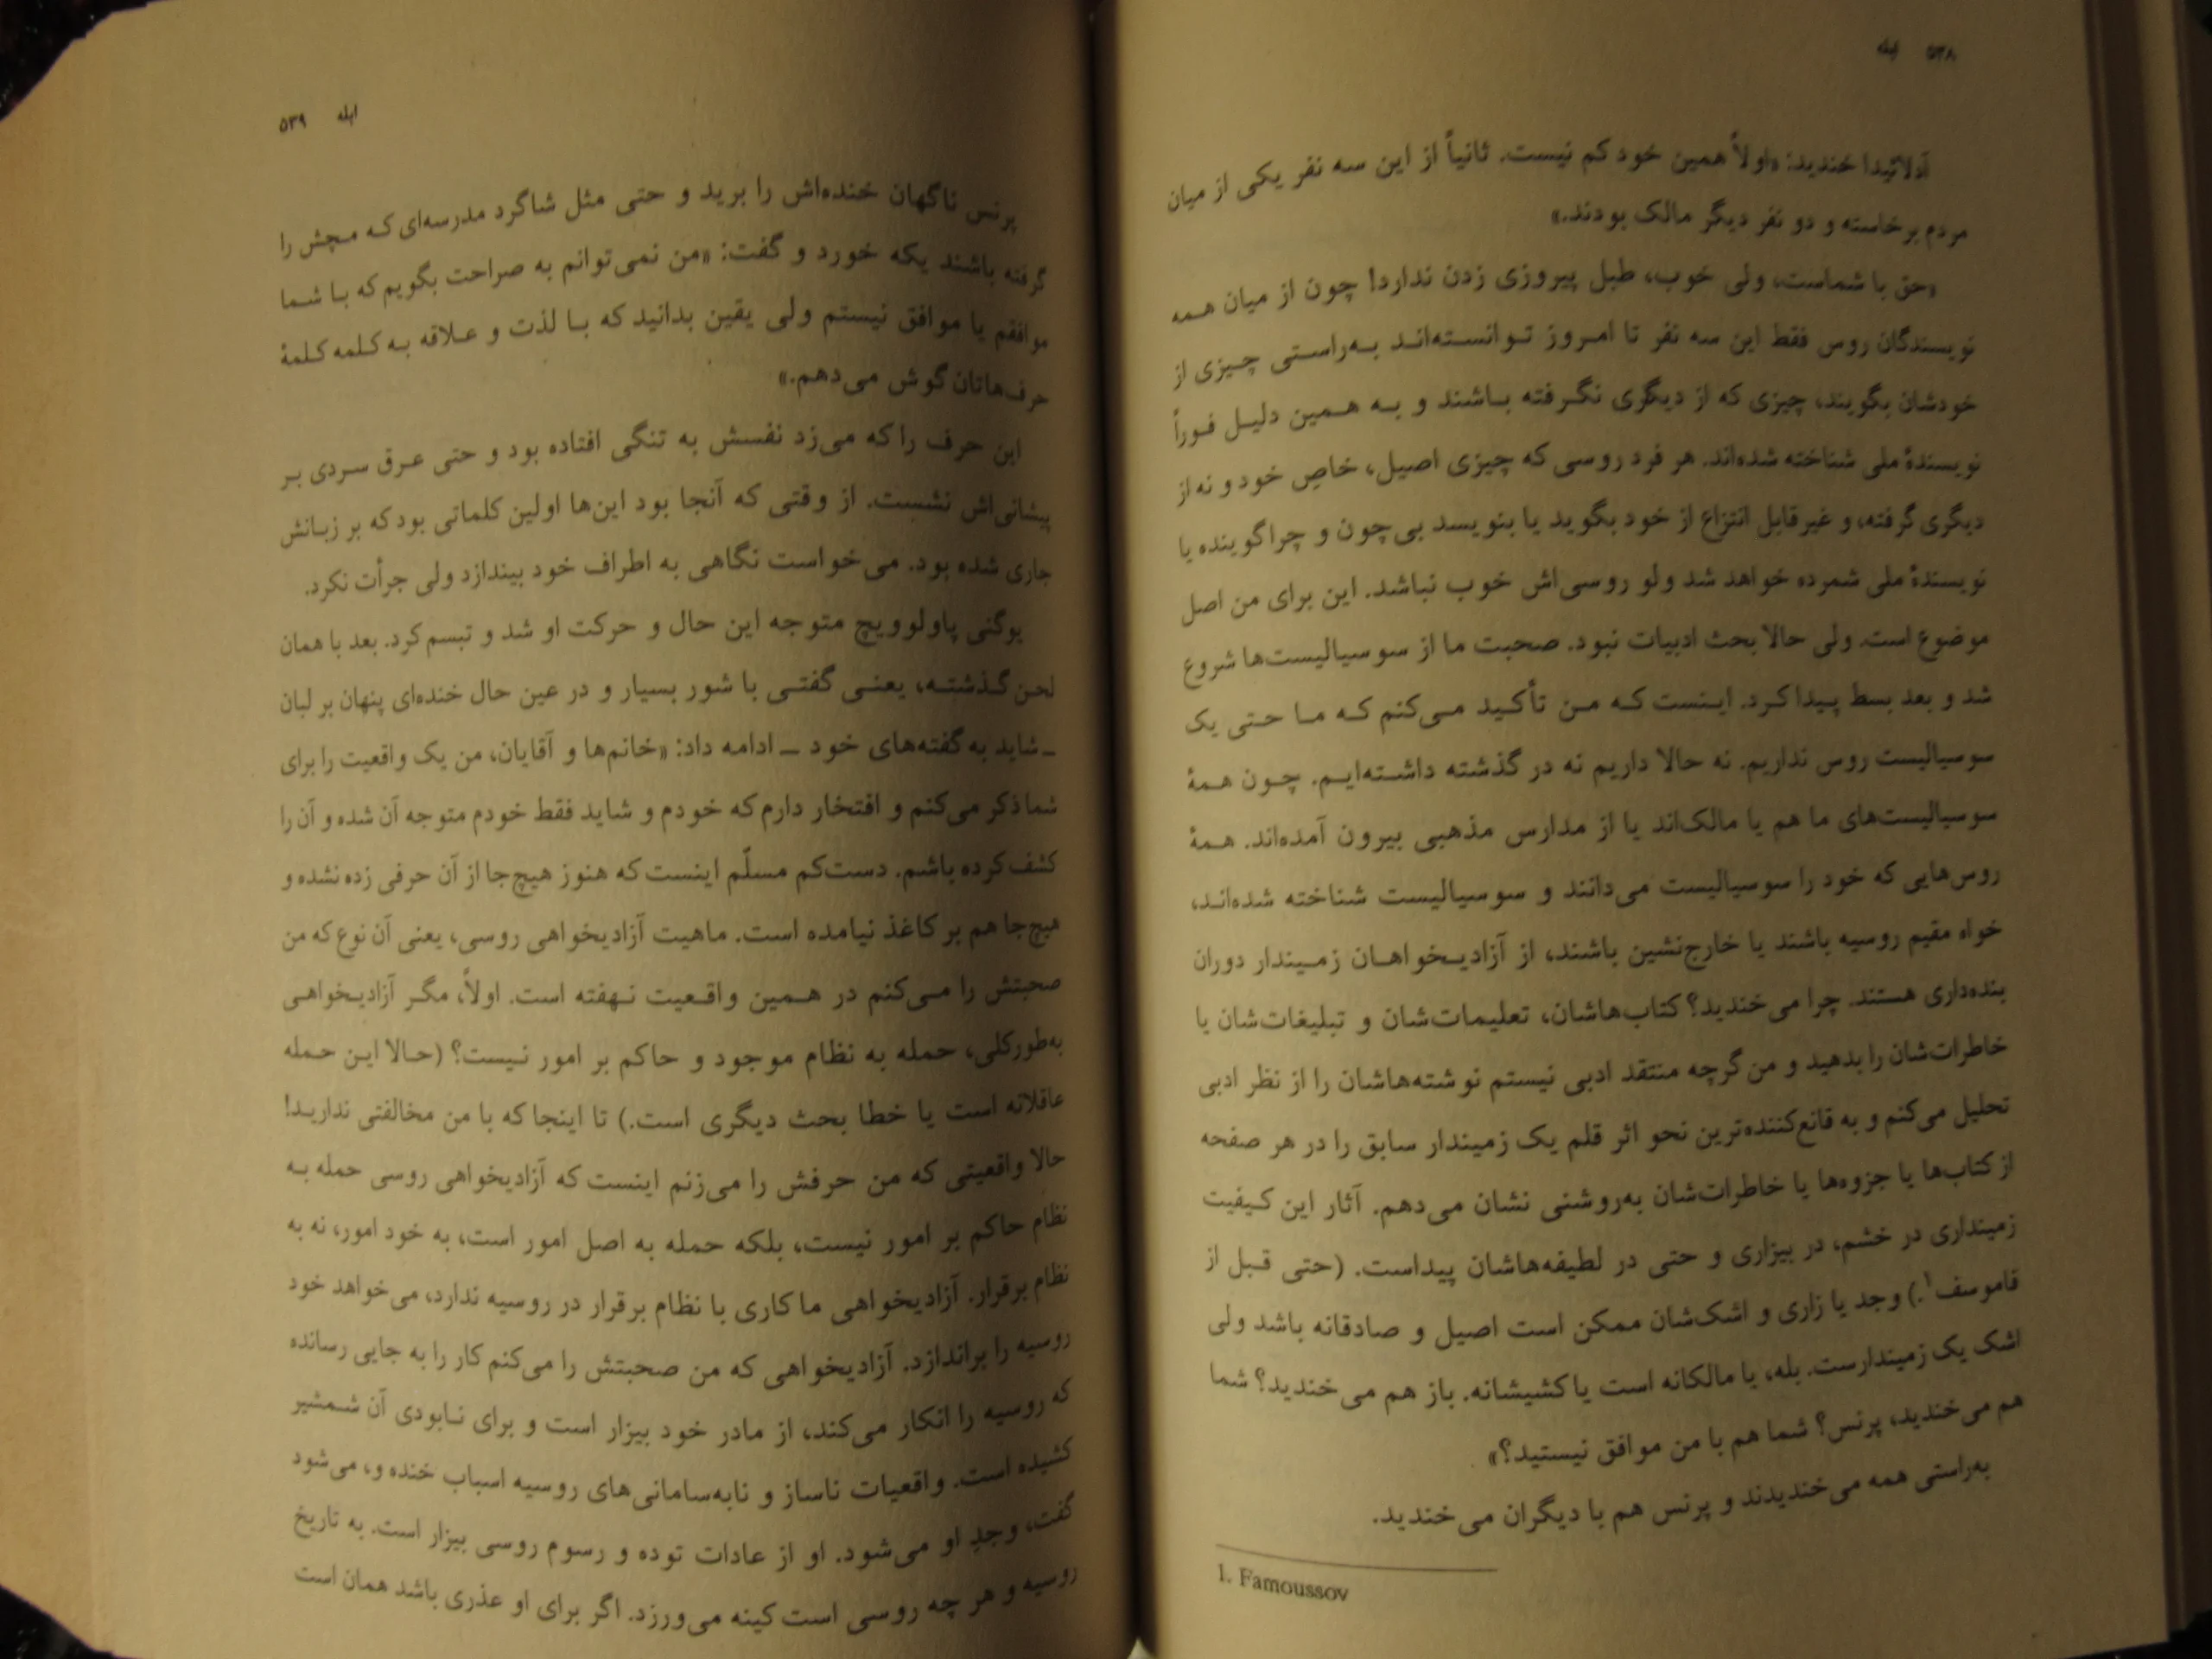 ۵۳۸ ابله
آدلائیدا خندید: «اولاً همین خود کم نیست. ثانیاً از این سه نفر یکی از میان
مردم برخاسته و دو نفر دیگر مالک بودند.»
«حق با شماست، ولی خوب، طبل پیروزی زدن ندارد! چون از میان همه
نویسندگان روس فقط این سه نفر تا امروز توانسته‌اند به‌راستی چیزی از
خودشان بگویند، چیزی که از دیگری نگرفته باشند و به همین دلیل فوراً
نویسندهٔ ملی شناخته شده‌اند. هر فرد روسی که چیزی اصیل، خاصِ خود و نه از
دیگری گرفته، و غیرقابل انتزاع از خود بگوید یا بنویسد بی‌چون و چرا گوینده یا
نویسندهٔ ملی شمرده خواهد شد ولو روسی‌اش خوب نباشد. این برای من اصل
موضوع است. ولی حالا بحث ادبیات نبود. صحبت ما از سوسیالیست‌ها شروع
شد و بعد بسط پیدا کرد. اینست که من تأکید می‌کنم که ما حتی یک
سوسیالیست روس نداریم. نه حالا داریم نه در گذشته داشته‌ایم. چون همهٔ
سوسیالیست‌های ما هم یا مالک‌اند یا از مدارس مذهبی بیرون آمده‌اند. همهٔ
روس‌هایی که خود را سوسیالیست می‌دانند و سوسیالیست شناخته شده‌اند،
خواه مقیم روسیه باشند یا خارج‌نشین باشند، از آزادیخواهان زمیندار دوران
بنده‌داری هستند. چرا می‌خندید؟ کتاب‌هاشان، تعلیمات‌شان و تبلیغات‌شان یا
خاطرات‌شان را بدهید و من گرچه منتقد ادبی نیستم نوشته‌هاشان را از نظر ادبی
تحلیل می‌کنم و به قانع‌کننده‌ترین نحو اثر قلم یک زمیندار سابق را در هر صفحه
از کتاب‌ها یا جزوه‌ها یا خاطرات‌شان به‌روشنی نشان می‌دهم. آثار این کیفیت
زمینداری در خشم، در بیزاری و حتی در لطیفه‌هاشان پیداست. (حتی قبل از
فاموسف۱.) وجد یا زاری و اشک‌شان ممکن است اصیل و صادقانه باشد ولی
اشک یک زمیندارست. بله، یا مالکانه است یا کشیشانه. باز هم می‌خندید؟ شما
هم می‌خندید، پرنس؟ شما هم با من موافق نیستید؟»
به‌راستی همه می‌خندیدند و پرنس هم با دیگران می‌خندید.
1. Famoussov
ابله ۵۳۹
پرنس ناگهان خنده‌اش را برید و حتی مثل شاگرد مدرسه‌ای که مچش را
گرفته باشند یکه خورد و گفت: «من نمی‌توانم به صراحت بگویم که با شما
موافقم یا موافق نیستم ولی یقین بدانید که با لذت و علاقه به کلمه کلمهٔ
حرف‌هاتان گوش می‌دهم.»
این حرف را که می‌زد نفسش به تنگی افتاده بود و حتی عرق سردی بر
پیشانی‌اش نشست. از وقتی که آنجا بود این‌ها اولین کلماتی بود که بر زبانش
جاری شده بود. می‌خواست نگاهی به اطراف خود بیندازد ولی جرأت نکرد.
یوگنی پاولوویچ متوجه این حال و حرکت او شد و تبسم کرد. بعد با همان
لحن گذشته، یعنی گفتی با شور بسیار و در عین حال خنده‌ای پنهان بر لبان
ــ شاید به گفته‌های خود ــ ادامه داد: «خانم‌ها و آقایان، من یک واقعیت را برای
شما ذکر می‌کنم و افتخار دارم که خودم و شاید فقط خودم متوجه آن شده و آن را
کشف کرده باشم. دست‌کم مسلّم اینست که هنوز هیچ‌جا از آن حرفی زده نشده و
هیچ‌جا هم بر کاغذ نیامده است. ماهیت آزادیخواهی روسی، یعنی آن نوع که من
صحبتش را می‌کنم در همین واقعیت نهفته است. اولاً، مگر آزادیخواهی
به‌طورکلی، حمله به نظام موجود و حاکم بر امور نیست؟ (حالا این حمله
عاقلانه است یا خطا بحث دیگری است.) تا اینجا که با من مخالفتی ندارید!
حالا واقعیتی که من حرفش را می‌زنم اینست که آزادیخواهی روسی حمله به
نظام حاکم بر امور نیست، بلکه حمله به اصل امور است، به خود امور، نه به
نظام برقرار. آزادیخواهی ما کاری با نظام برقرار در روسیه ندارد، می‌خواهد خود
روسیه را براندازد. آزادیخواهی که من صحبتش را می‌کنم کار را به جایی رسانده
که روسیه را انکار می‌کند، از مادر خود بیزار است و برای نابودی آن شمشیر
کشیده است. واقعیات ناساز و نابه‌سامانی‌های روسیه اسباب خنده و، می‌شود
گفت، وجدِ او می‌شود. او از عادات توده و رسوم روسی بیزار است. به تاریخ
روسیه و هر چه روسی است کینه می‌ورزد. اگر برای او عذری باشد همان است